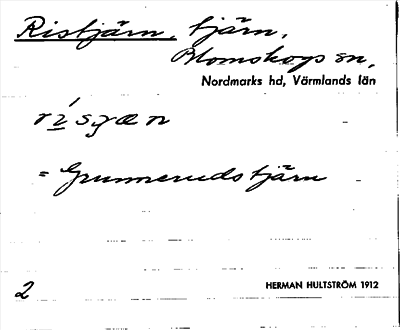 Ristjärn, tjärn,
Blomskogs sn,
Nordmarks hd, Värmlands län
= Grunnerudstjärn
2
HERMAN HULTSTRÖM 1912